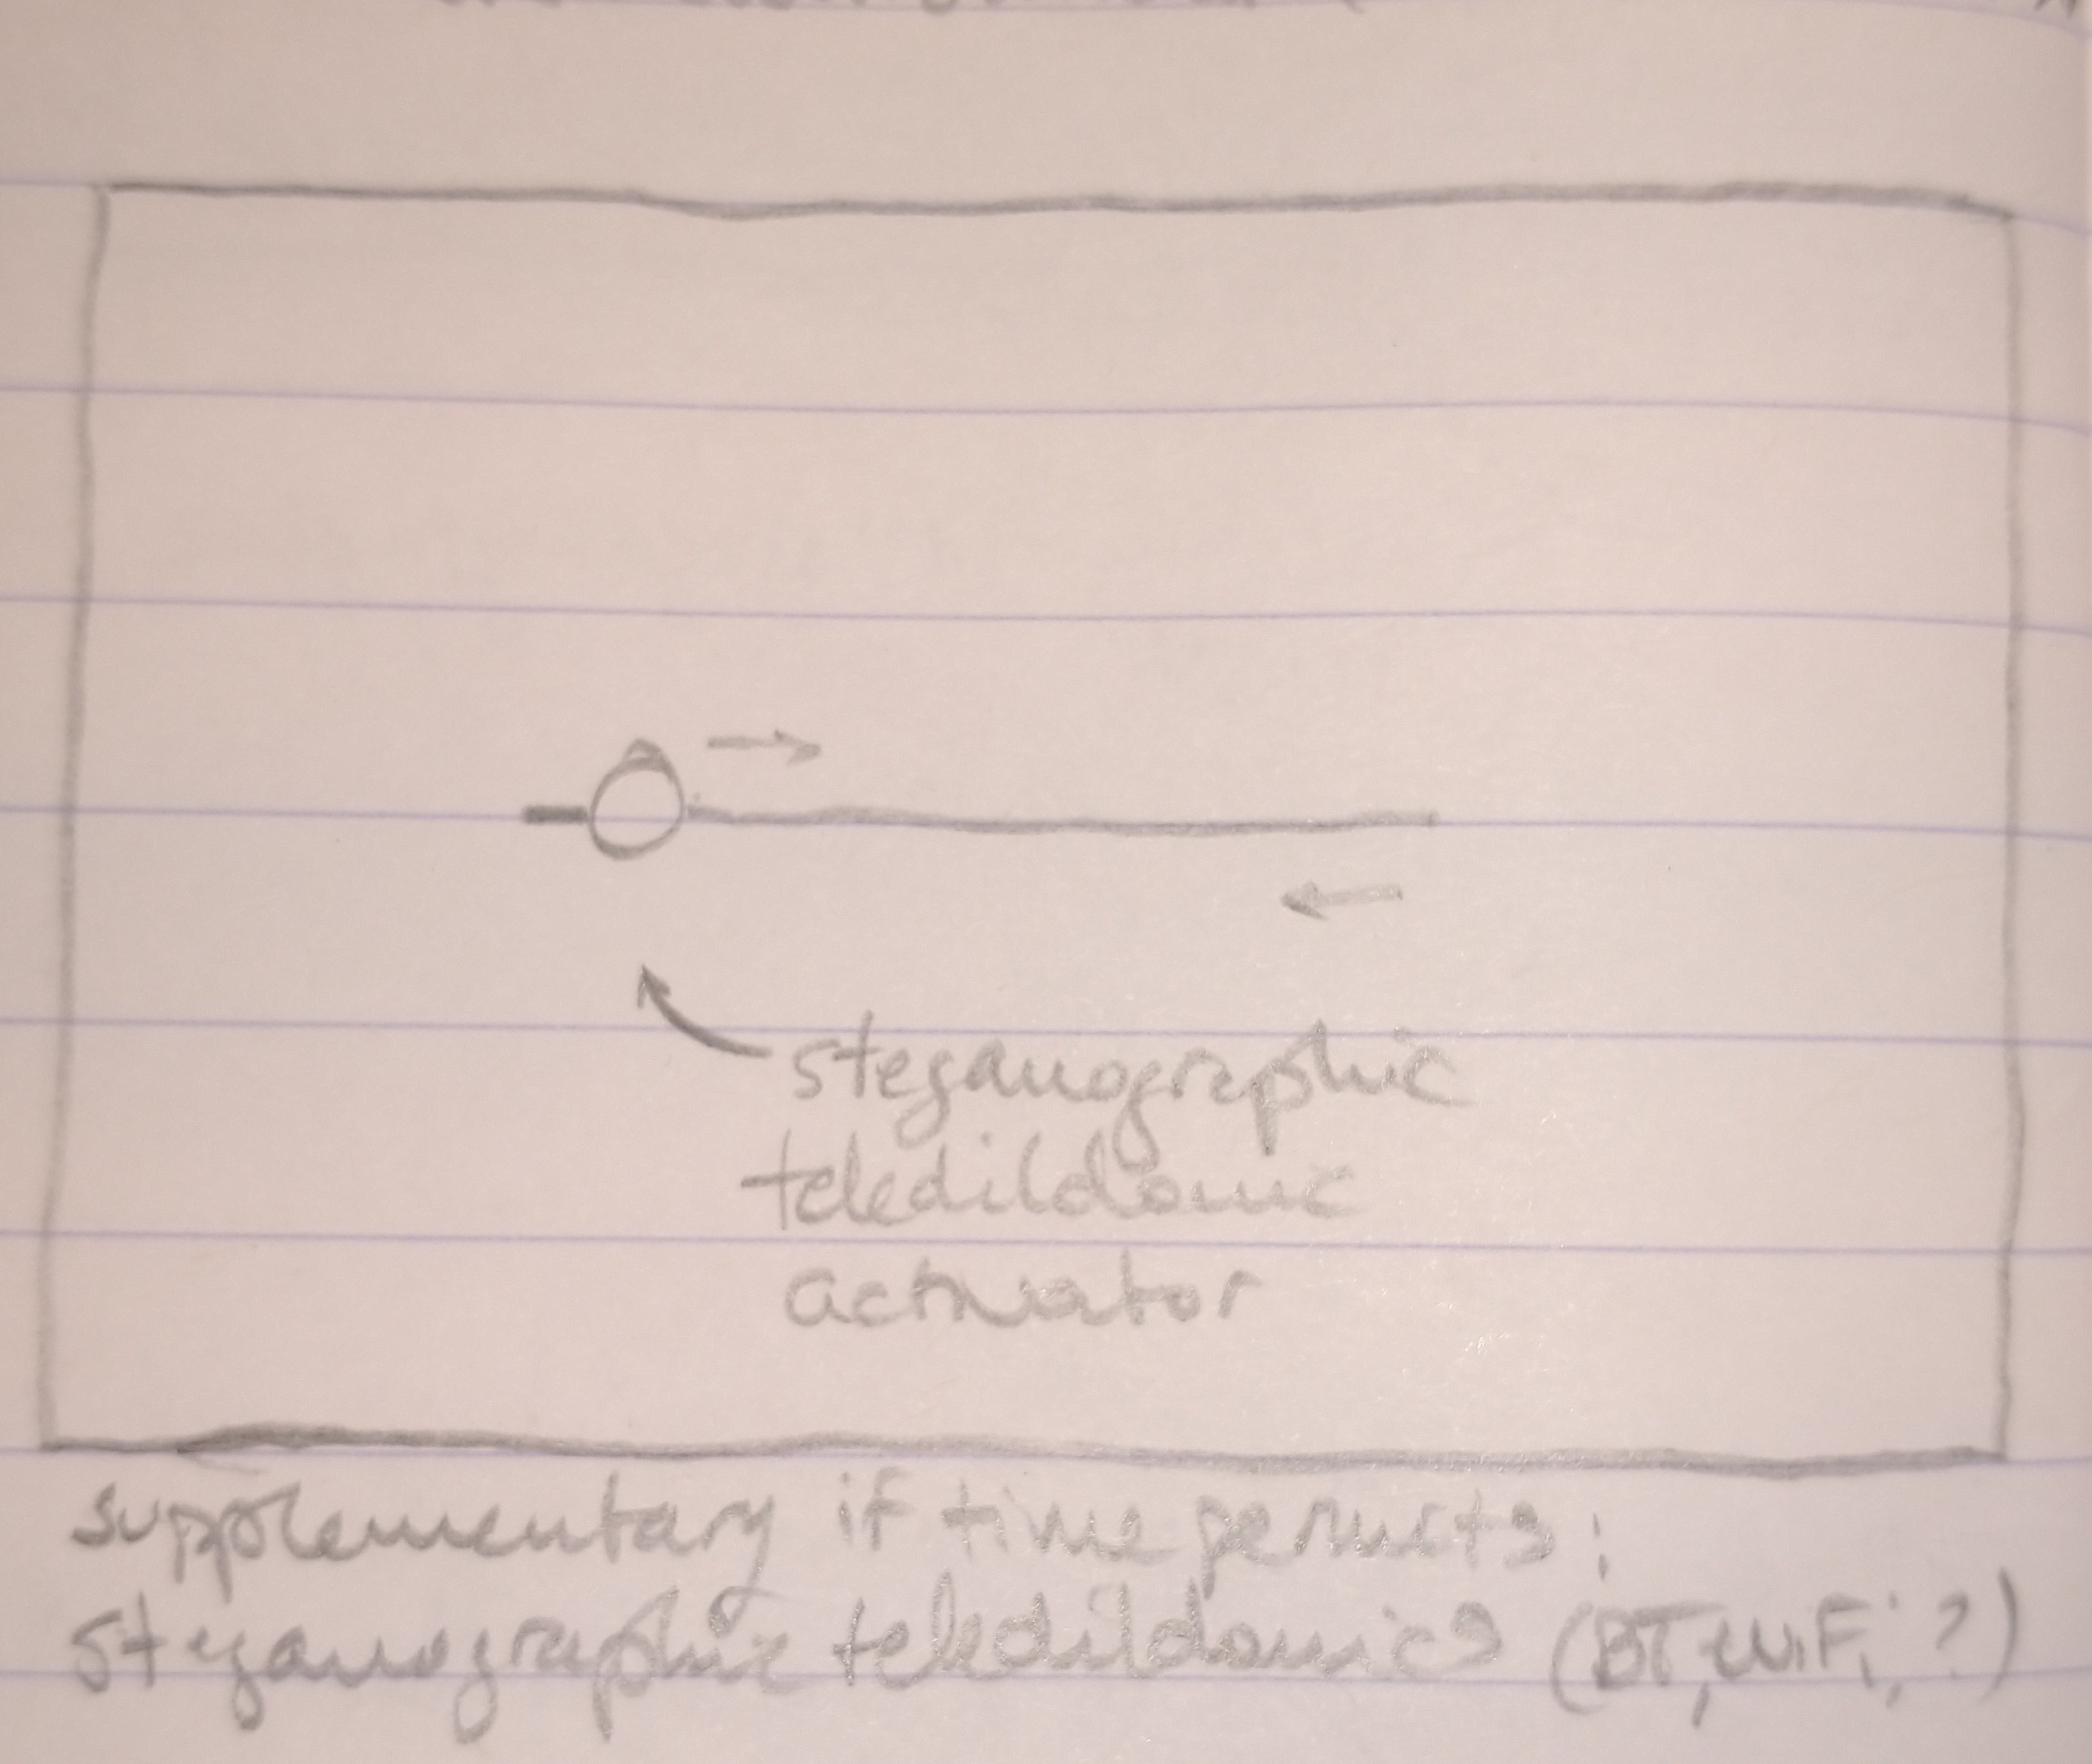 steganographic
teledildonic
actuator
supplementary if time permits:
steganographic teledildonics (BT, WiFi, ?)